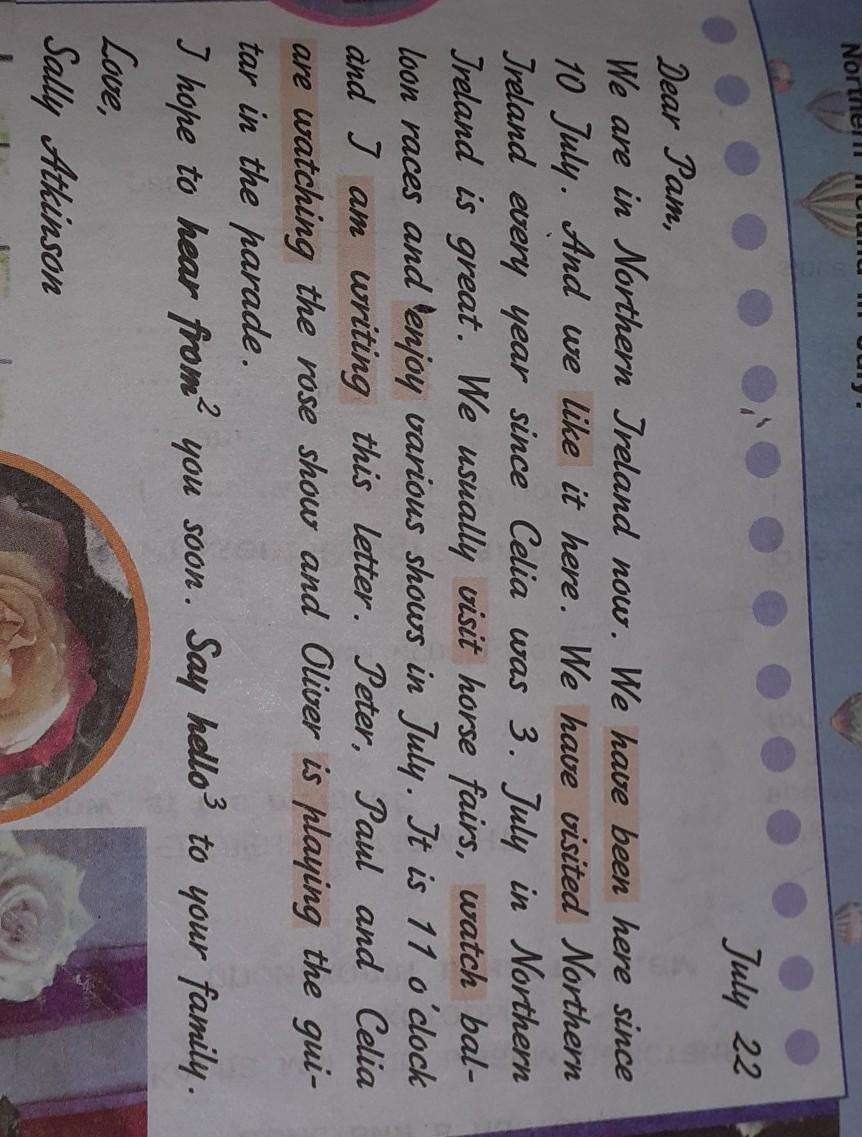 July 22
Dear Pam,
We are in Northern Ireland now. We have been here since
10 July. And we like it here. We have visited Northern
Ireland every year since Celia was 3. July in Northern
Ireland is great. We usually visit horse fairs, watch bal-
loon races and enjoy various shows in July. It is 11 o'clock
and I am writing this letter. Peter, Paul and Celia
are watching the rose show and Oliver is playing the gui-
tar in the parade.
I hope to hear from² you soon. Say hello³ to your family.
Love,
Sally Atkinson